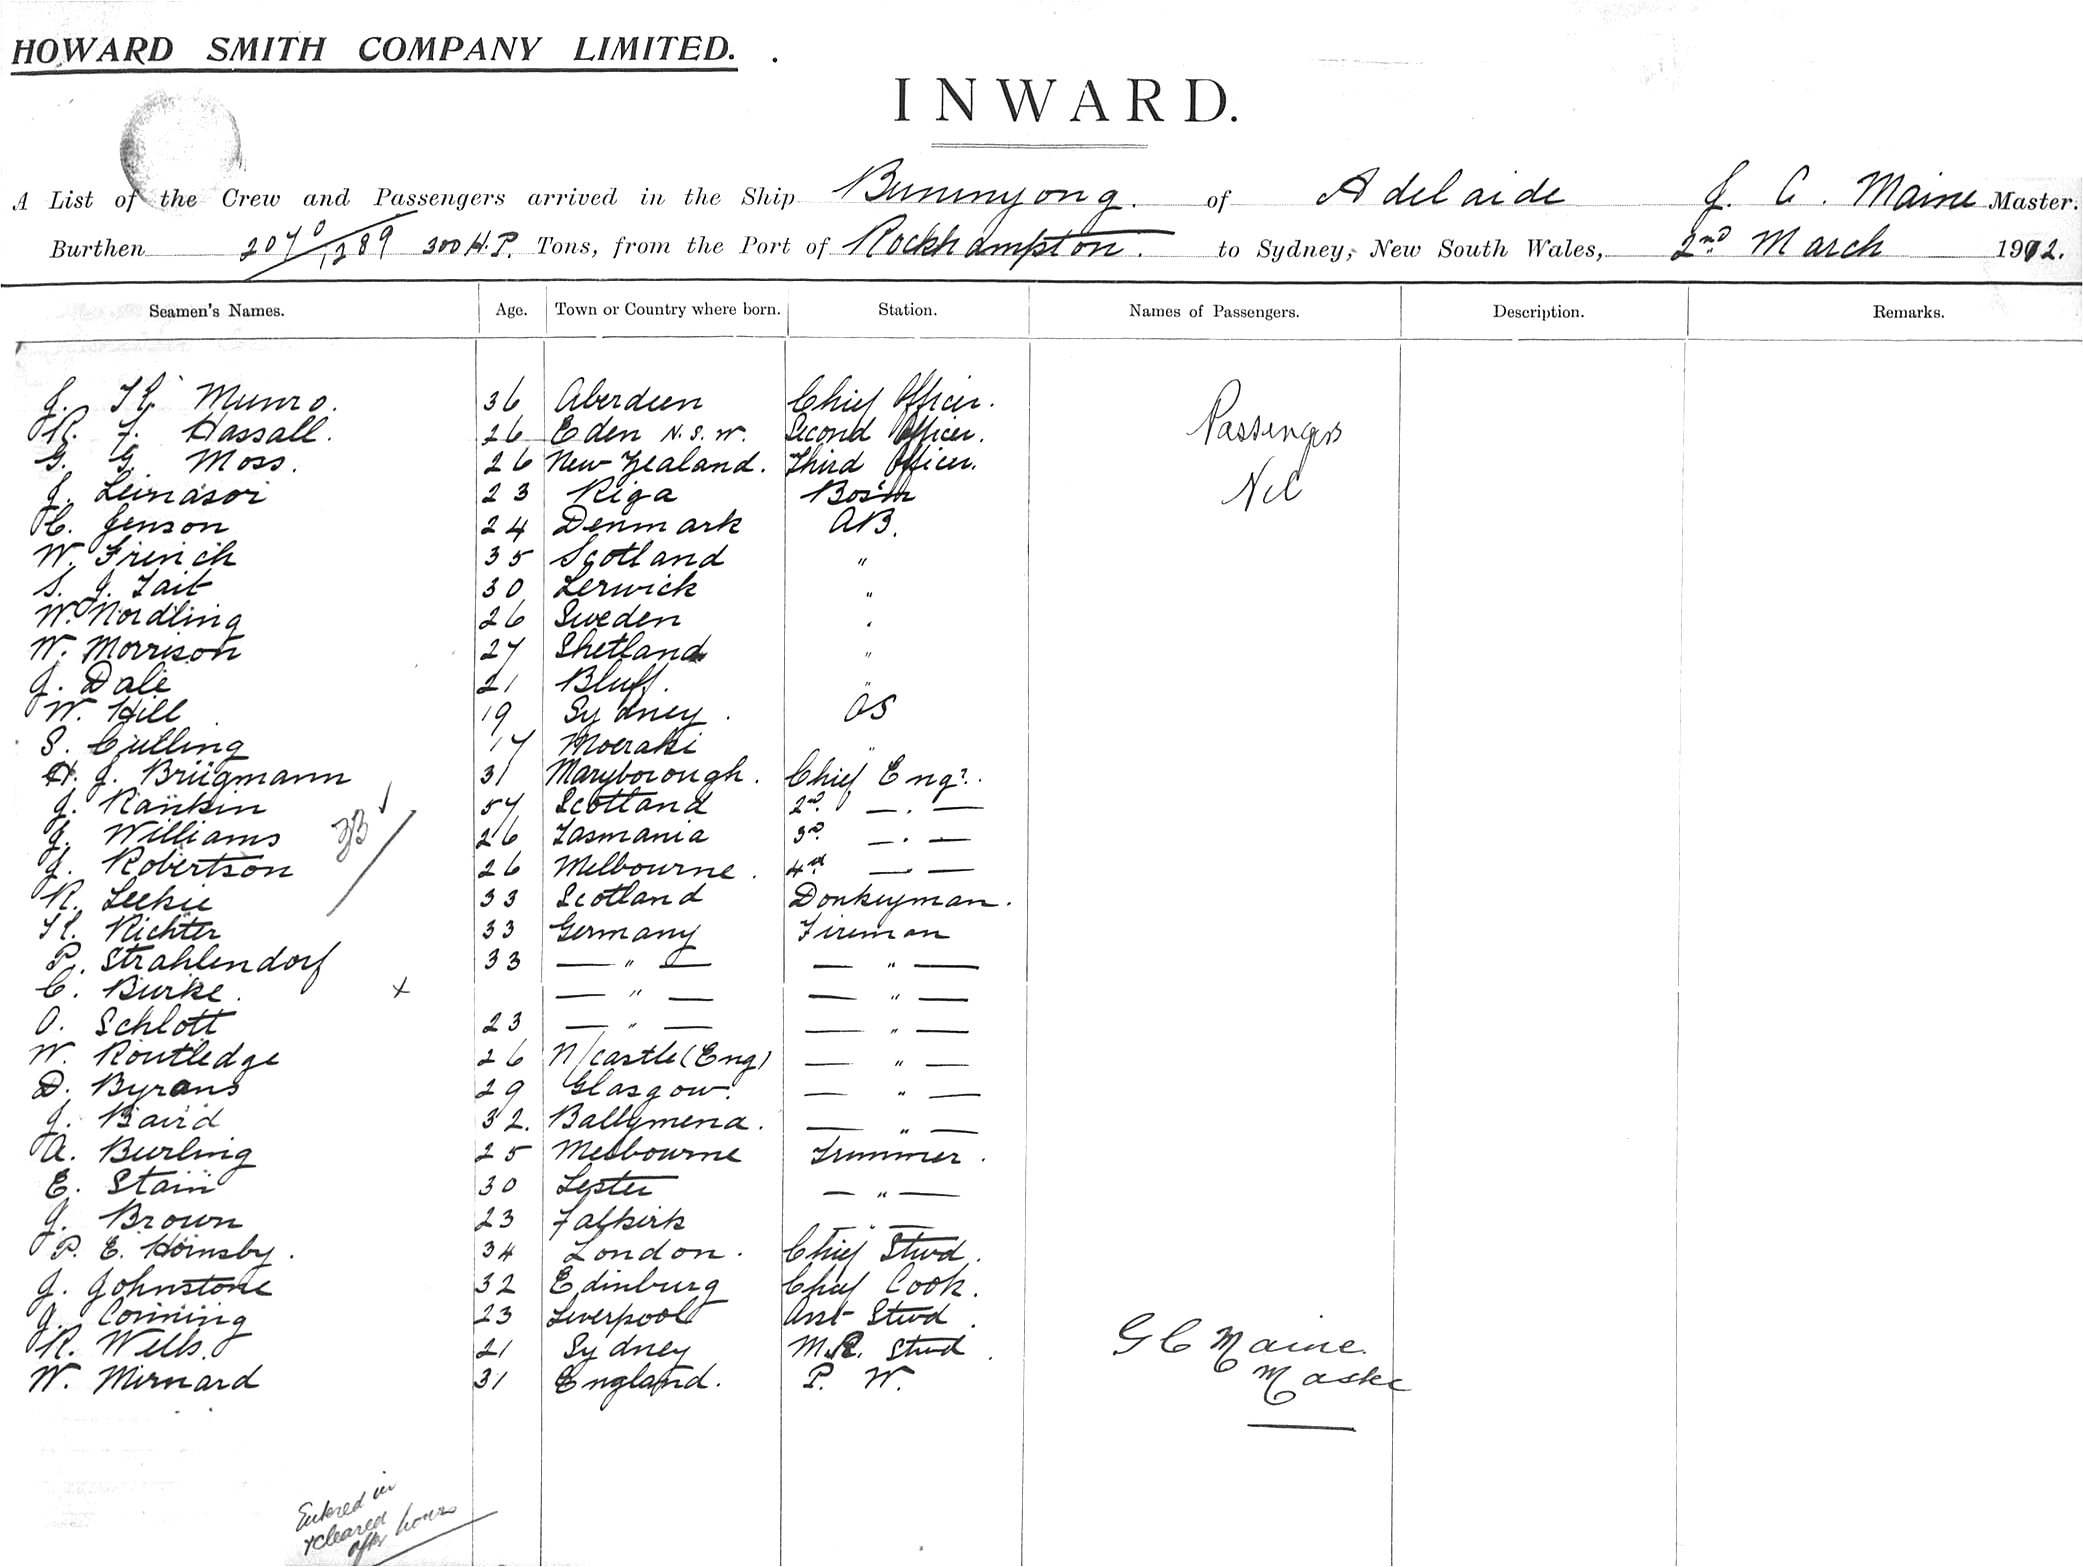 HOWARD SMITH COMPANY LIMITED.
INWARD.
A List of the Crew and Passengers arrived in the Ship Bunninyong. of Adelaide J. C. Maine Master.
Burthen 2070/1289 300 H.P. Tons, from the Port of Rockhampton. to Sydney, New South Wales, 2nd March 1912.
Seamen's Names. Age. Town or Country where born. Station. Names of Passengers. Description. Remarks.
J. K. Munro. 36 Aberdeen Chief Officer.
R. F. Hassall. 26 Eden N.S.W. Second Officer. Passengers
G. G. Moss. 26 New Zealand. Third Officer.
J. 23 Riga Bos'm Nil
C. Jenson 24 Denmark AB.
W. French 35 Scotland "
S. J. Tait 30 Lerwick "
W. Nordling 26 Sweden "
W. Morrison 27 Shetland "
J. Dale 21 Bluff. "
W. Hill 19 Sydney. OS
S. Culling 17 Moeraki "
H. J. Brügmann 31 Maryborough. Chief Engr.
J. Rankin 57 Scotland 2nd — . —
J. Williams 33 26 Tasmania 3rd — . —
J. Robertson 26 Melbourne. 4th — " —
R. Leckie 33 Scotland Donkeyman.
K. Richter 33 Germany Fireman
P. Strahlendorf 33 — " — — " —
C. Burke. x — " — — " —
O. Schlott 23 — " — — " —
W. Routledge 26 N/castle (Eng) — " —
D. Byrans 29 Glasgow. — " —
J. Baird 32. Ballymena. — " —
A. Burling 25 Melbourne Trimmer.
E. Stain 30 Lester — " —
J. Brown 23 Falkirk — " —
P. E. Hornsby. 34 London. Chief Stwd.
J. Johnstone 32 Edinburg Chief Cook.
J. Conning 23 Liverpool Asst Stwd.
R. Wells. 21 Sydney M.R. Stwd. G C Maine.
W. Mirnard 31 England. P. W. Maste
Entered in
& cleared
after hours